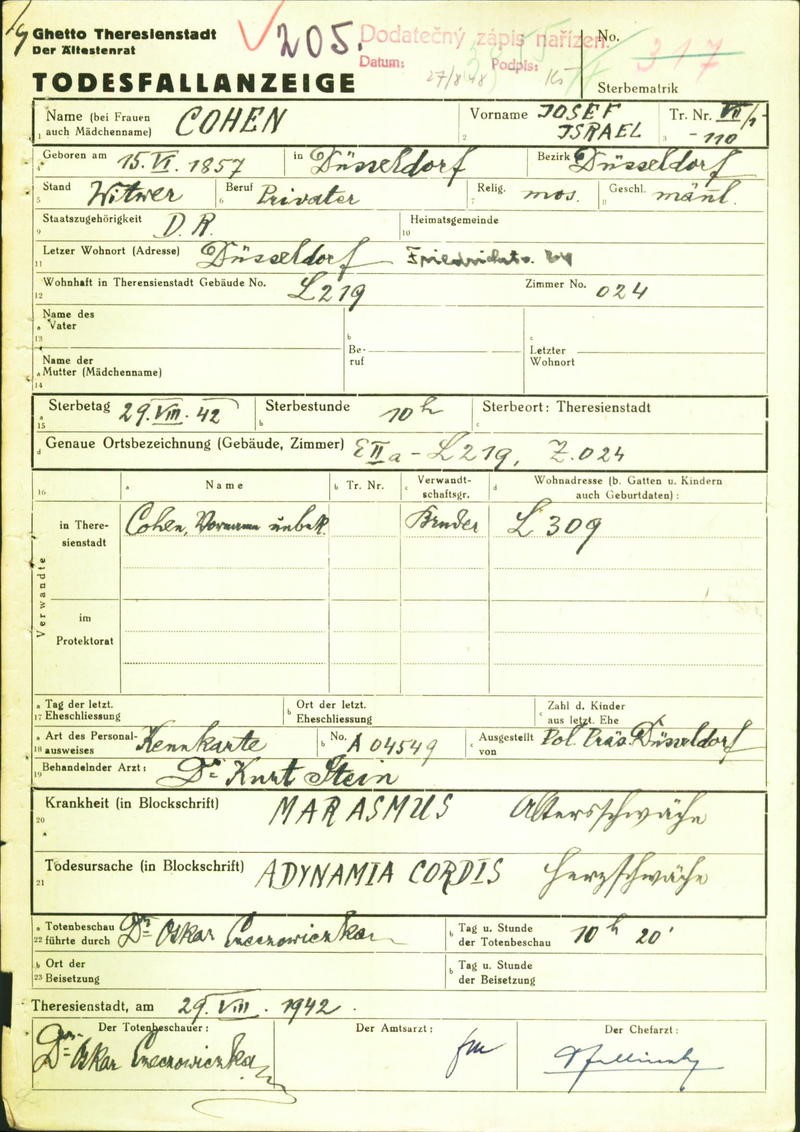 Ghetto Theresienstadt
Der Ältestenrat
205.
Dodatečný zápis nařízen:
Datum: 27/8 48 Podpis:
No. 317
TODESFALLANZEIGE
Sterbematrik
Name (bei Frauen auch Mädchenname) COHEN
1
Vorname JOSEF ISRAEL
2
Tr. Nr. VII/1 - 110
3
Geboren am 15. VI. 1857 in Düsseldorf Bezirk Düsseldorf
4
Stand Witwer Beruf Privater Relig. mos. Geschl. männl.
5 6 7 8
Staatszugehörigkeit D. R. Heimatsgemeinde
9 10
Letzer Wohnort (Adresse) Düsseldorf
11
Wohnhaft in Theresienstadt Gebäude No. L 219 Zimmer No. 024
12
Name des
a Vater
13
b Be-
ruf
c Letzter
Wohnort
Name der
a Mutter (Mädchenname)
14
a Sterbetag 29. VIII. 42 b Sterbestunde 10 h c Sterbeort: Theresienstadt
15
d Genaue Ortsbezeichnung (Gebäude, Zimmer) E IIa - L 219, Z. 024
16 a Name b Tr. Nr. c Verwandt-
schaftsgr. d Wohnadresse (b. Gatten u. Kindern
auch Geburtdaten) :
Verwandte
in There-
sienstadt Cohen, Vorname unbek. Bruder L 309
im
Protektorat
a Tag der letzt.
17 Eheschliessung
b Ort der letzt.
Eheschliessung
c Zahl d. Kinder
aus letzt. Ehe
a Art des Personal-
18 ausweises Kennkarte b No. A 04549 c Ausgestellt
von Pol. Präs. Düsseldorf
Behandelnder Arzt: Dr. Kurt Stein
19
Krankheit (in Blockschrift) MARASMUS Altersschwäche
20
a
Todesursache (in Blockschrift) ADYNAMIA CORDIS Herzschwäche
21
a Totenbeschau
22 führte durch Dr. Oskar
b Tag u. Stunde
der Totenbeschau 10 h 20'
b Ort der
23 Beisetzung
b Tag u. Stunde
der Beisetzung
Theresienstadt, am 29. VIII. 1942.
Der Totenbeschauer: Der Amtsarzt: Der Chefarzt:
Dr. Oskar